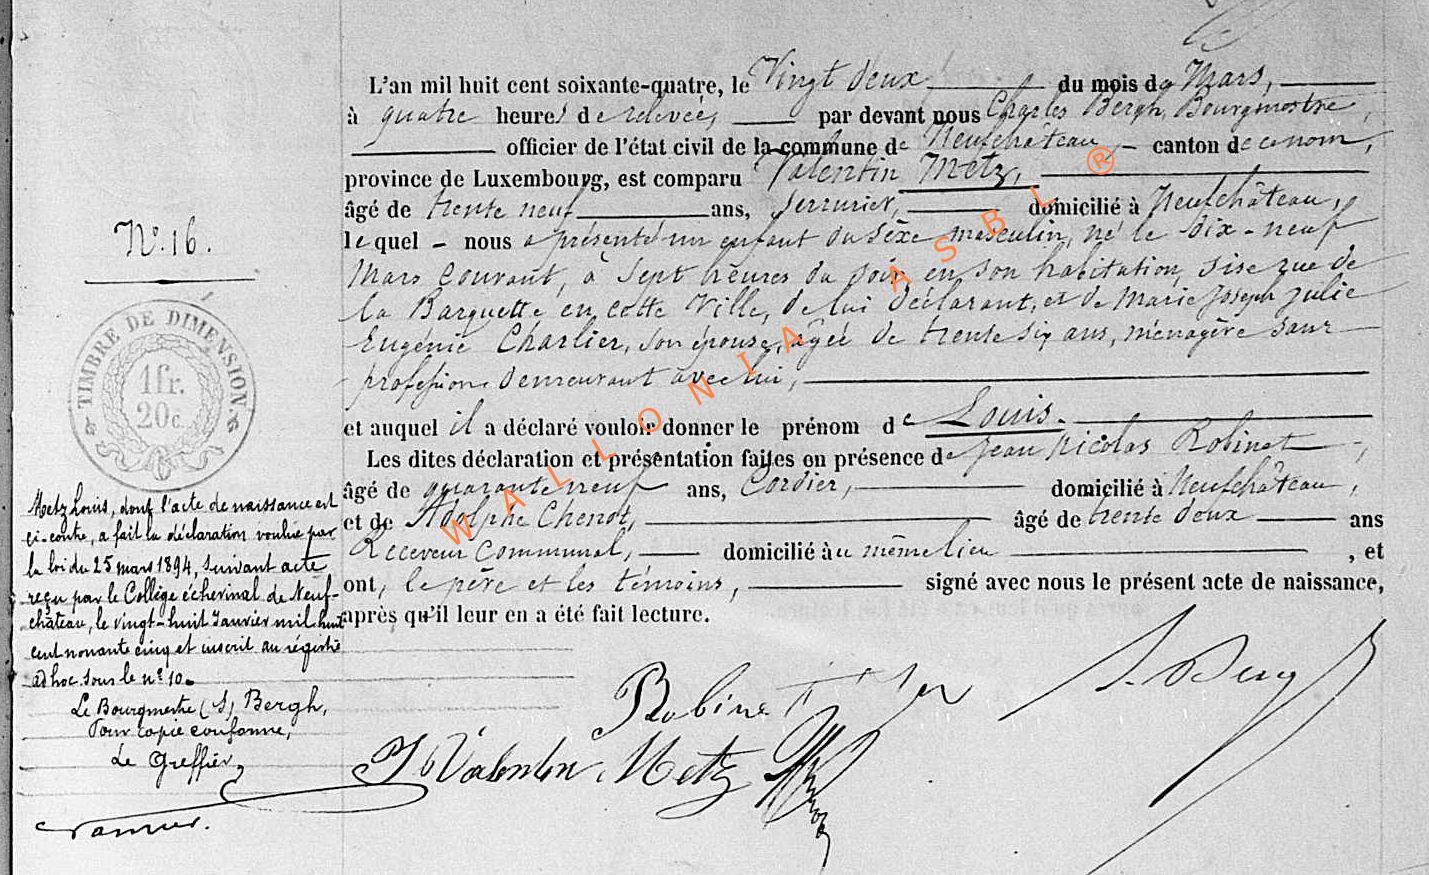 L'an mil huit cent soixante-quatre, le Vingt deux du mois de Mars,
à quatre heures de relevée, par devant nous Charles Bergh, Bourgmestre,
officier de l'état civil de la commune de Neufchâteau, canton de ce nom,
province de Luxembourg, est comparu Valentin Metz,
âgé de trente neuf ans, serrurier, domicilié à Neufchâteau,
lequel nous a présenté un enfant du sèxe masculin, né le dix-neuf
Mars courant, à sept heures du soir, en son habitation, sise rue de
la Barquette en cette Ville, de lui déclarant, et de Marie Joseph Julie
Eugénie Charlier, son épouse, agée de trente six ans, ménagère sans
profession demeurant avec lui,
et auquel il a déclaré vouloir donner le prénom de Louis.
Les dites déclaration et présentation faites en présence de Jean Nicolas Robinet,
âgé de quarante neuf ans, Cordier, domicilié à Neufchâteau,
et de Adolphe Chenot, âgé de trente deux ans
Receveur Communal, domicilié au même lieu, et
ont, le père et les témoins, signé avec nous le présent acte de naissance,
après qu'il leur en a été fait lecture.
N° 16.
TIMBRE DE DIMENSION
1 fr.
20 c.
Metz Louis, dont l'acte de naissance est
ci-contre, a fait la déclaration voulue par
la loi du 25 mars 1894, suivant acte
reçu par le Collège échevinal de Neuf-
château, le vingt-huit Janvier mil huit
cent nonante cinq et inscrit au régistre
ad hoc sous le n° 10.
Le Bourgmestre (S) Bergh,
Pour copie conforme,
Le Greffier,
Robinet
C. Bergh
Valentin Metz
WALLONIA ASBL ®